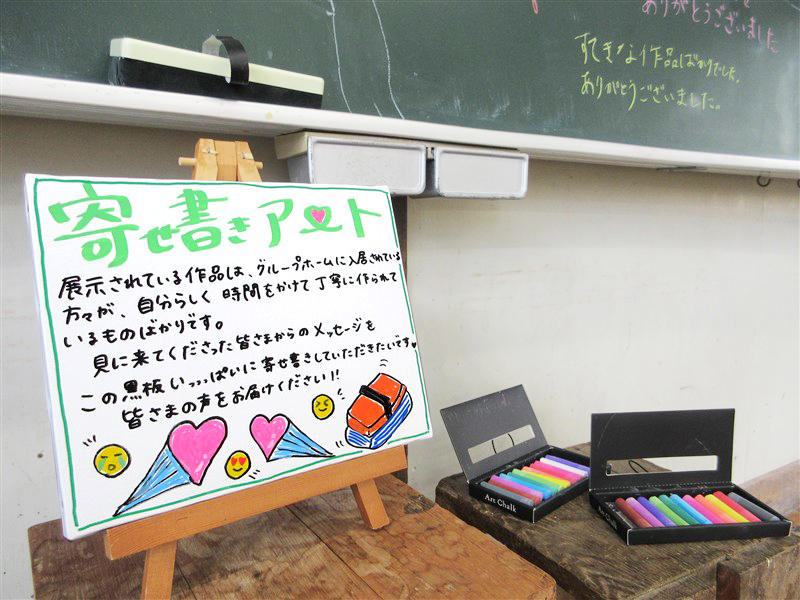 ありがとうございました
すてきな作品ばかりでした。
ありがとうございました。
寄せ書きアート
展示されている作品は、グループホームに入居されている
方々が、自分らしく時間をかけて丁寧に作られて
いるものばかりです。
見に来てくださった皆さまからのメッセージを
この黒板いっっぱいに寄せ書きしていただきたいです
皆さまの声をお届けください!!
Art Chalk
Art Chalk